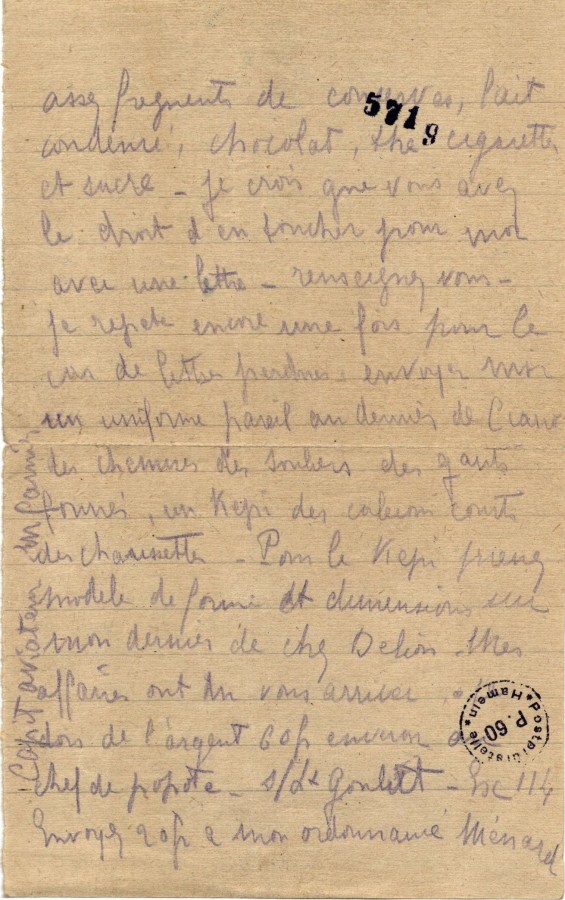 5719
assez frequents de conserves, lait
condensé, chocolat, thé cigarettes
et sucre - je crois que vous avez
le droit d en toucher pour moi
avec une lettre - renseignez vous -
Je repete encore une fois pour le
cas de lettres perdues - envoyez moi
un uniforme pareil au dernier de
des chemises des souliers des gants
fourrés, un Kepi des calecons courts
des chaussettes - Pour le Kepi prenez
modele de forme et dimensions sur
mon dernier de chez Delion. Mes
affaires ont du vous arriver. Je
dois de l'argent 60f environ au
chef de popote - s/Lt - Esc 114
Envoyez 20f a mon ordonnance Ménard
Capit aviateur
Postprüfstelle
P. 60
Hameln